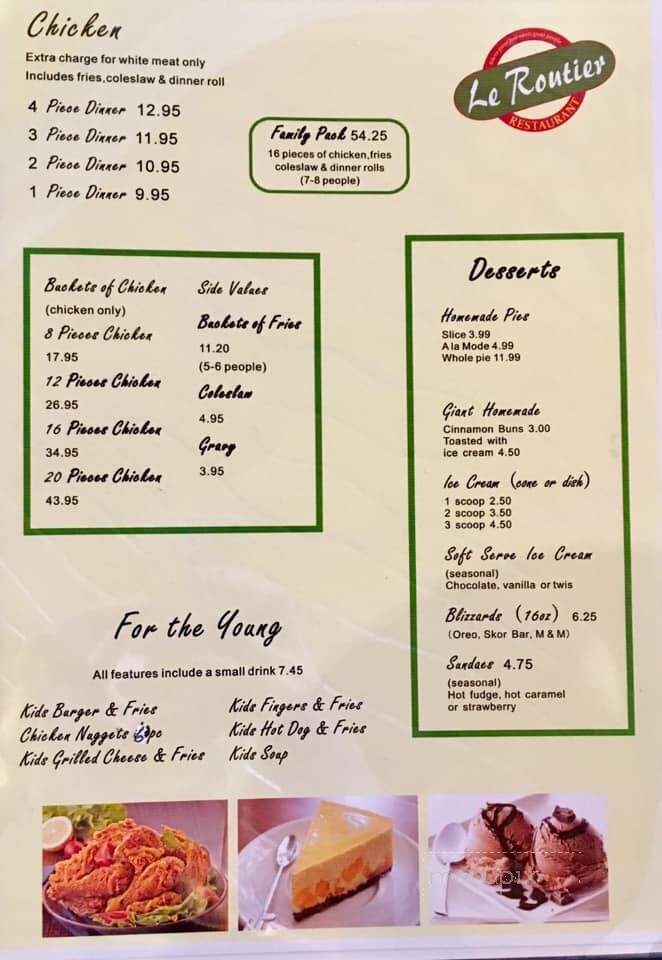 Chicken
Extra charge for white meat only
Includes fries,coleslaw & dinner roll
4 Piece Dinner 12.95
3 Piece Dinner 11.95
2 Piece Dinner 10.95
1 Piece Dinner 9.95
Le Routier
RESTAURANT
Family Pack 54.25
16 pieces of chicken,fries
coleslaw & dinner rolls
(7-8 people)
Buckets of Chicken
(chicken only)
8 Pieces Chicken
17.95
12 Pieces Chicken
26.95
16 Pieces Chicken
34.95
20 Pieces Chicken
43.95
Side Values
Buckets of Fries
11.20
(5-6 people)
Coleslaw
4.95
Gravy
3.95
Desserts
Homemade Pies
Slice 3.99
A la Mode 4.99
Whole pie 11.99
Giant Homemade
Cinnamon Buns 3.00
Toasted with
ice cream 4.50
Ice Cream (cone or dish)
1 scoop 2.50
2 scoop 3.50
3 scoop 4.50
Soft Serve Ice Cream
(seasonal)
Chocolate, vanilla or twis
Blizzards (16oz) 6.25
(Oreo, Skor Bar, M & M)
Sundaes 4.75
(seasonal)
Hot fudge, hot caramel
or strawberry
For the Young
All features include a small drink 7.45
Kids Burger & Fries
Chicken Nuggets pc
Kids Grilled Cheese & Fries
Kids Fingers & Fries
Kids Hot Dog & Fries
Kids Soup